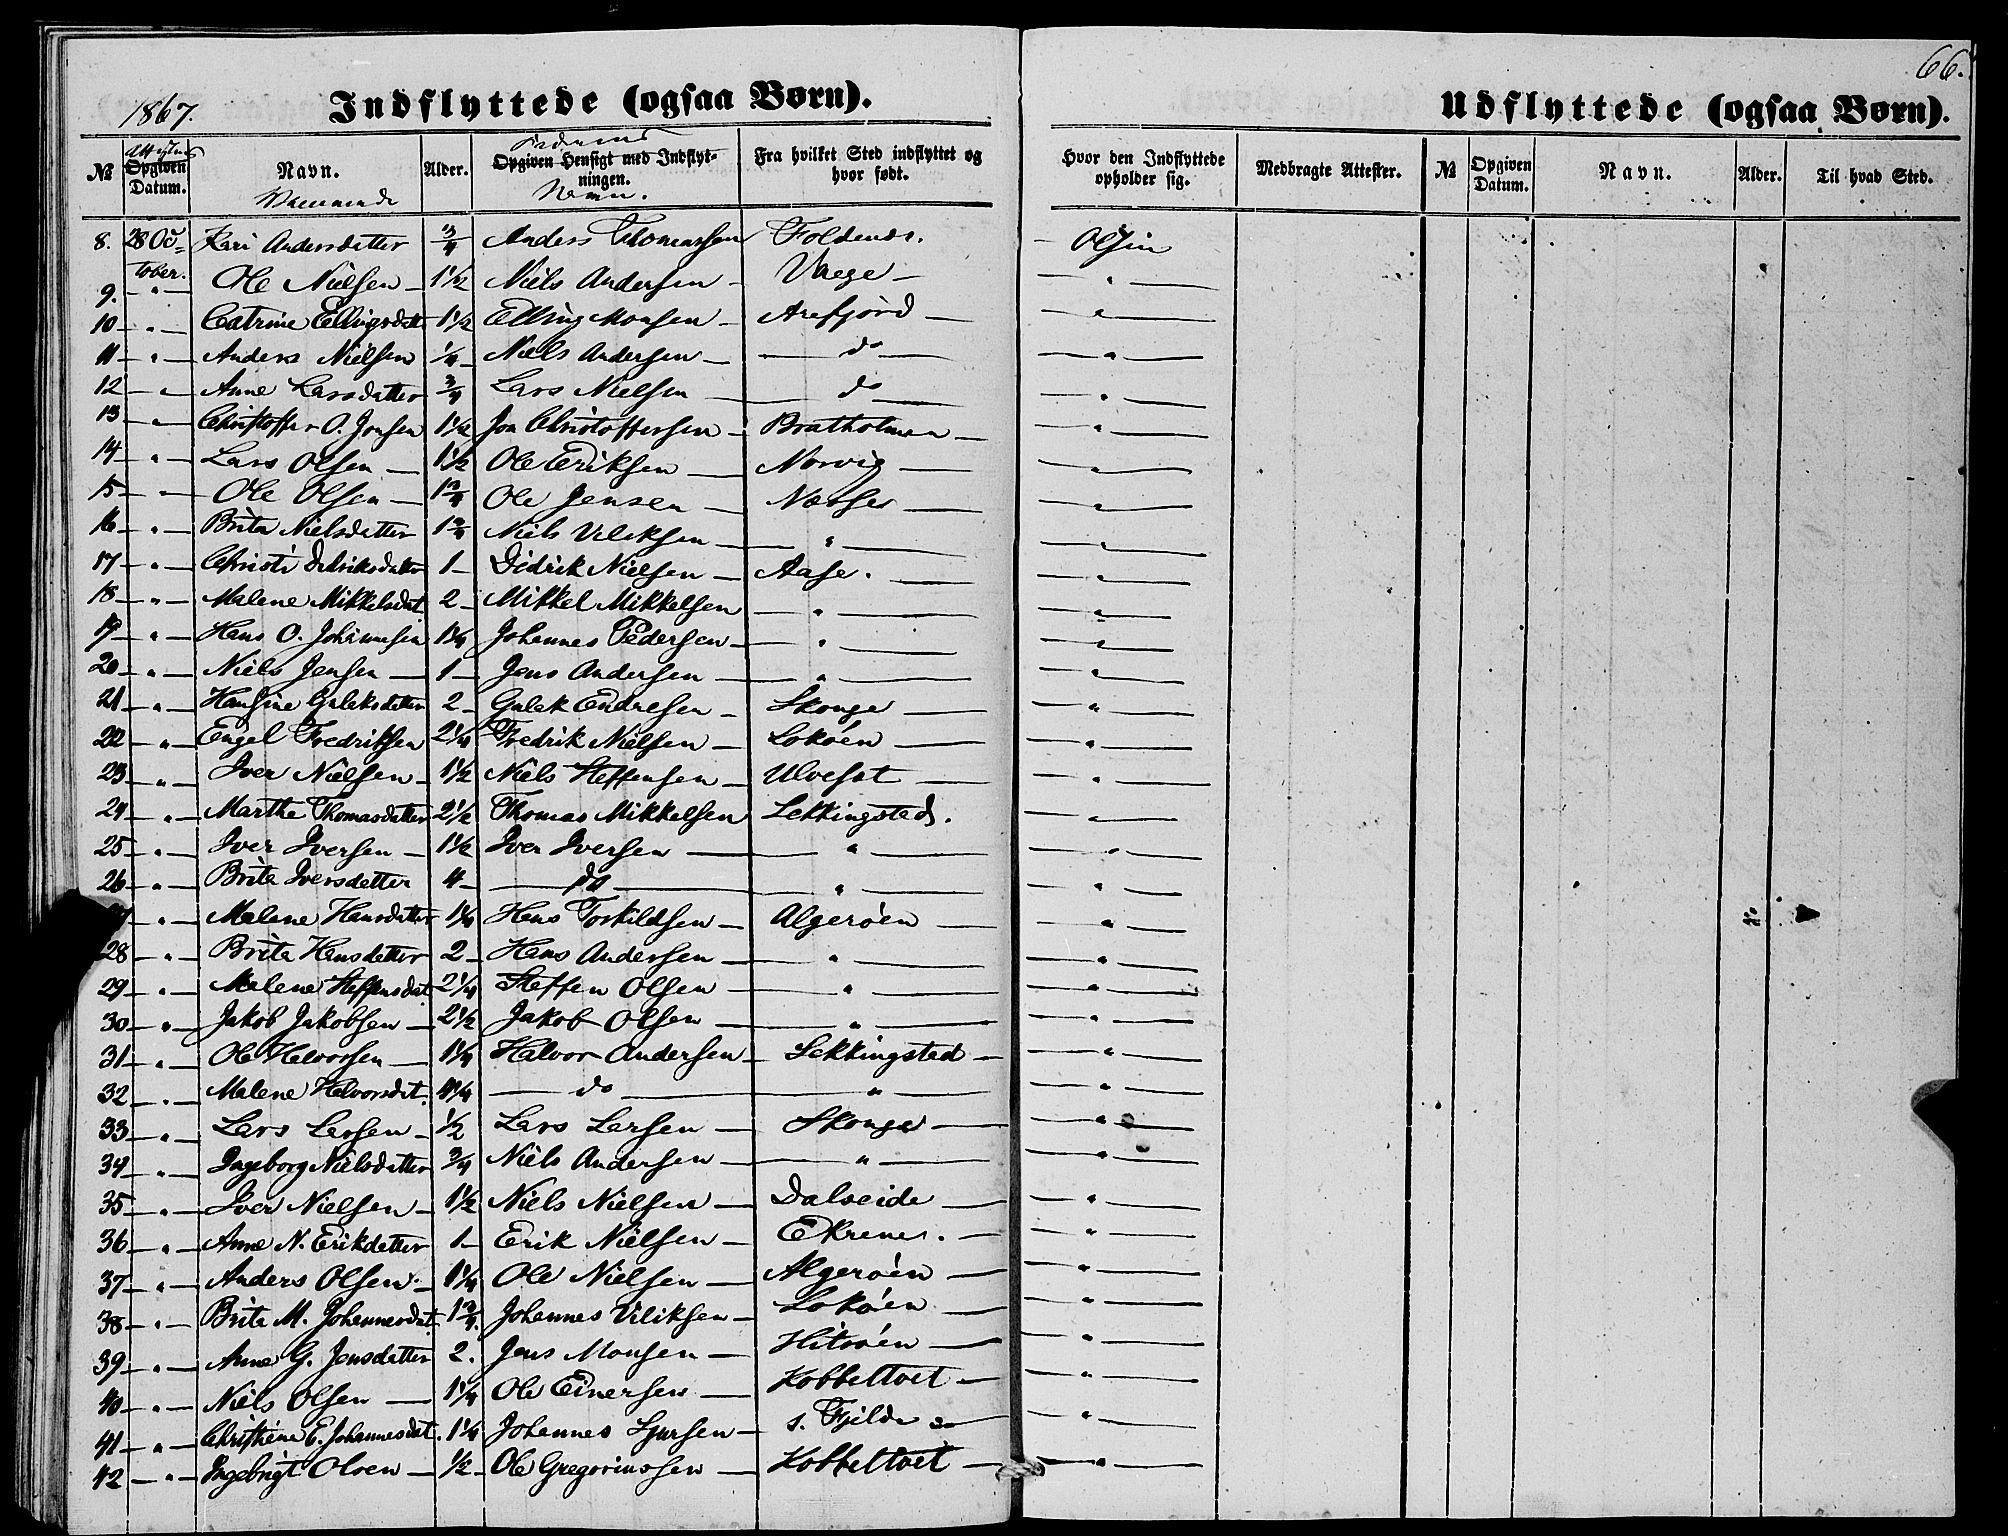 66.
1867. Indflyttede (ogsaa Børn). Udflyttede (ogsaa Børn).
№ Opgiven Datum. Navn. Alder. Opgiven Hensigt med Indflytningen. Fra hvilket Sted indflyttet og hvor født. Hvor den Indflyttede opholder sig. Medbragte Attester. № Opgiven Datum. Navn. Alder. Til hvad Sted.
Navn.
8. 28 Oc- Kari Andersdatter 3/4 Anders Thomassen Foldenes.
tober.
9. " Ole Nielsen 1 1/2 Niels Andersen Vaege "
10 " Catrine Ellingsdatt 1 1/2 Elling Monsen Arefjord "
11 " Anders Nielsen 1/4 Niels Andersen do "
12 " Anne Larsdatter 3/4 Lars Nielsen do "
13 " Christoffer O. Jonsen 1 1/2 Jon Christoffersen Bratholmen "
14 " Lars Olsen 1 1/2 Ole Eriksen Norvig "
15 " Ole Olsen 1 3/4 Ole Jensen Næsse "
16 " Brita Nielsdatter 1 3/4 Niels Viliksen " "
17 " Christi Didriksdatter 1 Didrik Nielsen Aase. "
18 " Malene Mikkelsdat 2 Mikkel Mikkelsen " "
19 " Hans O. Johannesen 1 1/4 Johannes Pedersen " "
20 " Niels Jensen 1 Jens Andersen " "
21 " Hansine Gulaksdatter 2 Gulak Endresen Skouge "
22 " Engel Fredriksen 2 1/4 Fredrik Nielsen Lokøen "
23 " Iver Nielsen 1 1/2 Niels Steffensen Ulveset "
24 " Marthe Thomasdatter 2 1/2 Thomas Mikkelsen Lekkingsted. "
25 " Iver Iversen 1 1/2 Iver Iversen " "
26 " Brita Iversdatter 4 do " "
" Malene Hansdatter 1 1/4 Hans Torkildsen Algerøen "
28 " Brita Hansdatter 2 Hans Andersen " "
29 " Malene Steffensdat 2 1/4 Steffen Olsen " "
30 " Jakob Jakobsen 2 1/2 Jakob Olsen " "
31 " Ole Halvorsen 1 1/4 Halvor Andersen Lekkingsted "
32 " Malene Halvorsdat. 4 1/4 do " "
33 " Lars Larsen 1/2 Lars Larsen Skouge "
34 " Ingeborg Nielsdatter 3/4 Niels Andersen " "
35 " Iver Nielsen 1 1/2 Niels Nielsen Dalseide "
36 " Anne N. Erikdatter 1 Erik Nielsen Ekrenes. "
37 " Anders Olsen. 1 1/4 Ole Nielsen Algerøen "
38 " Brita M. Johannesdat. 1 3/4. Johannes Viliksen Lokøen "
39 " Anne G. Jensdatter 2. Jens Monsen Hitsøen "
40 " Niels Olsen 1 1/4 Ole Einersen Kobbeltvet "
41 " Christiene E. Johannesdat. 1 1/4 Johannes Sjursen s. Fjelde "
42 " Ingebrigt Olsen 1/2 Ole Gregoriussen Kobbeltvet "